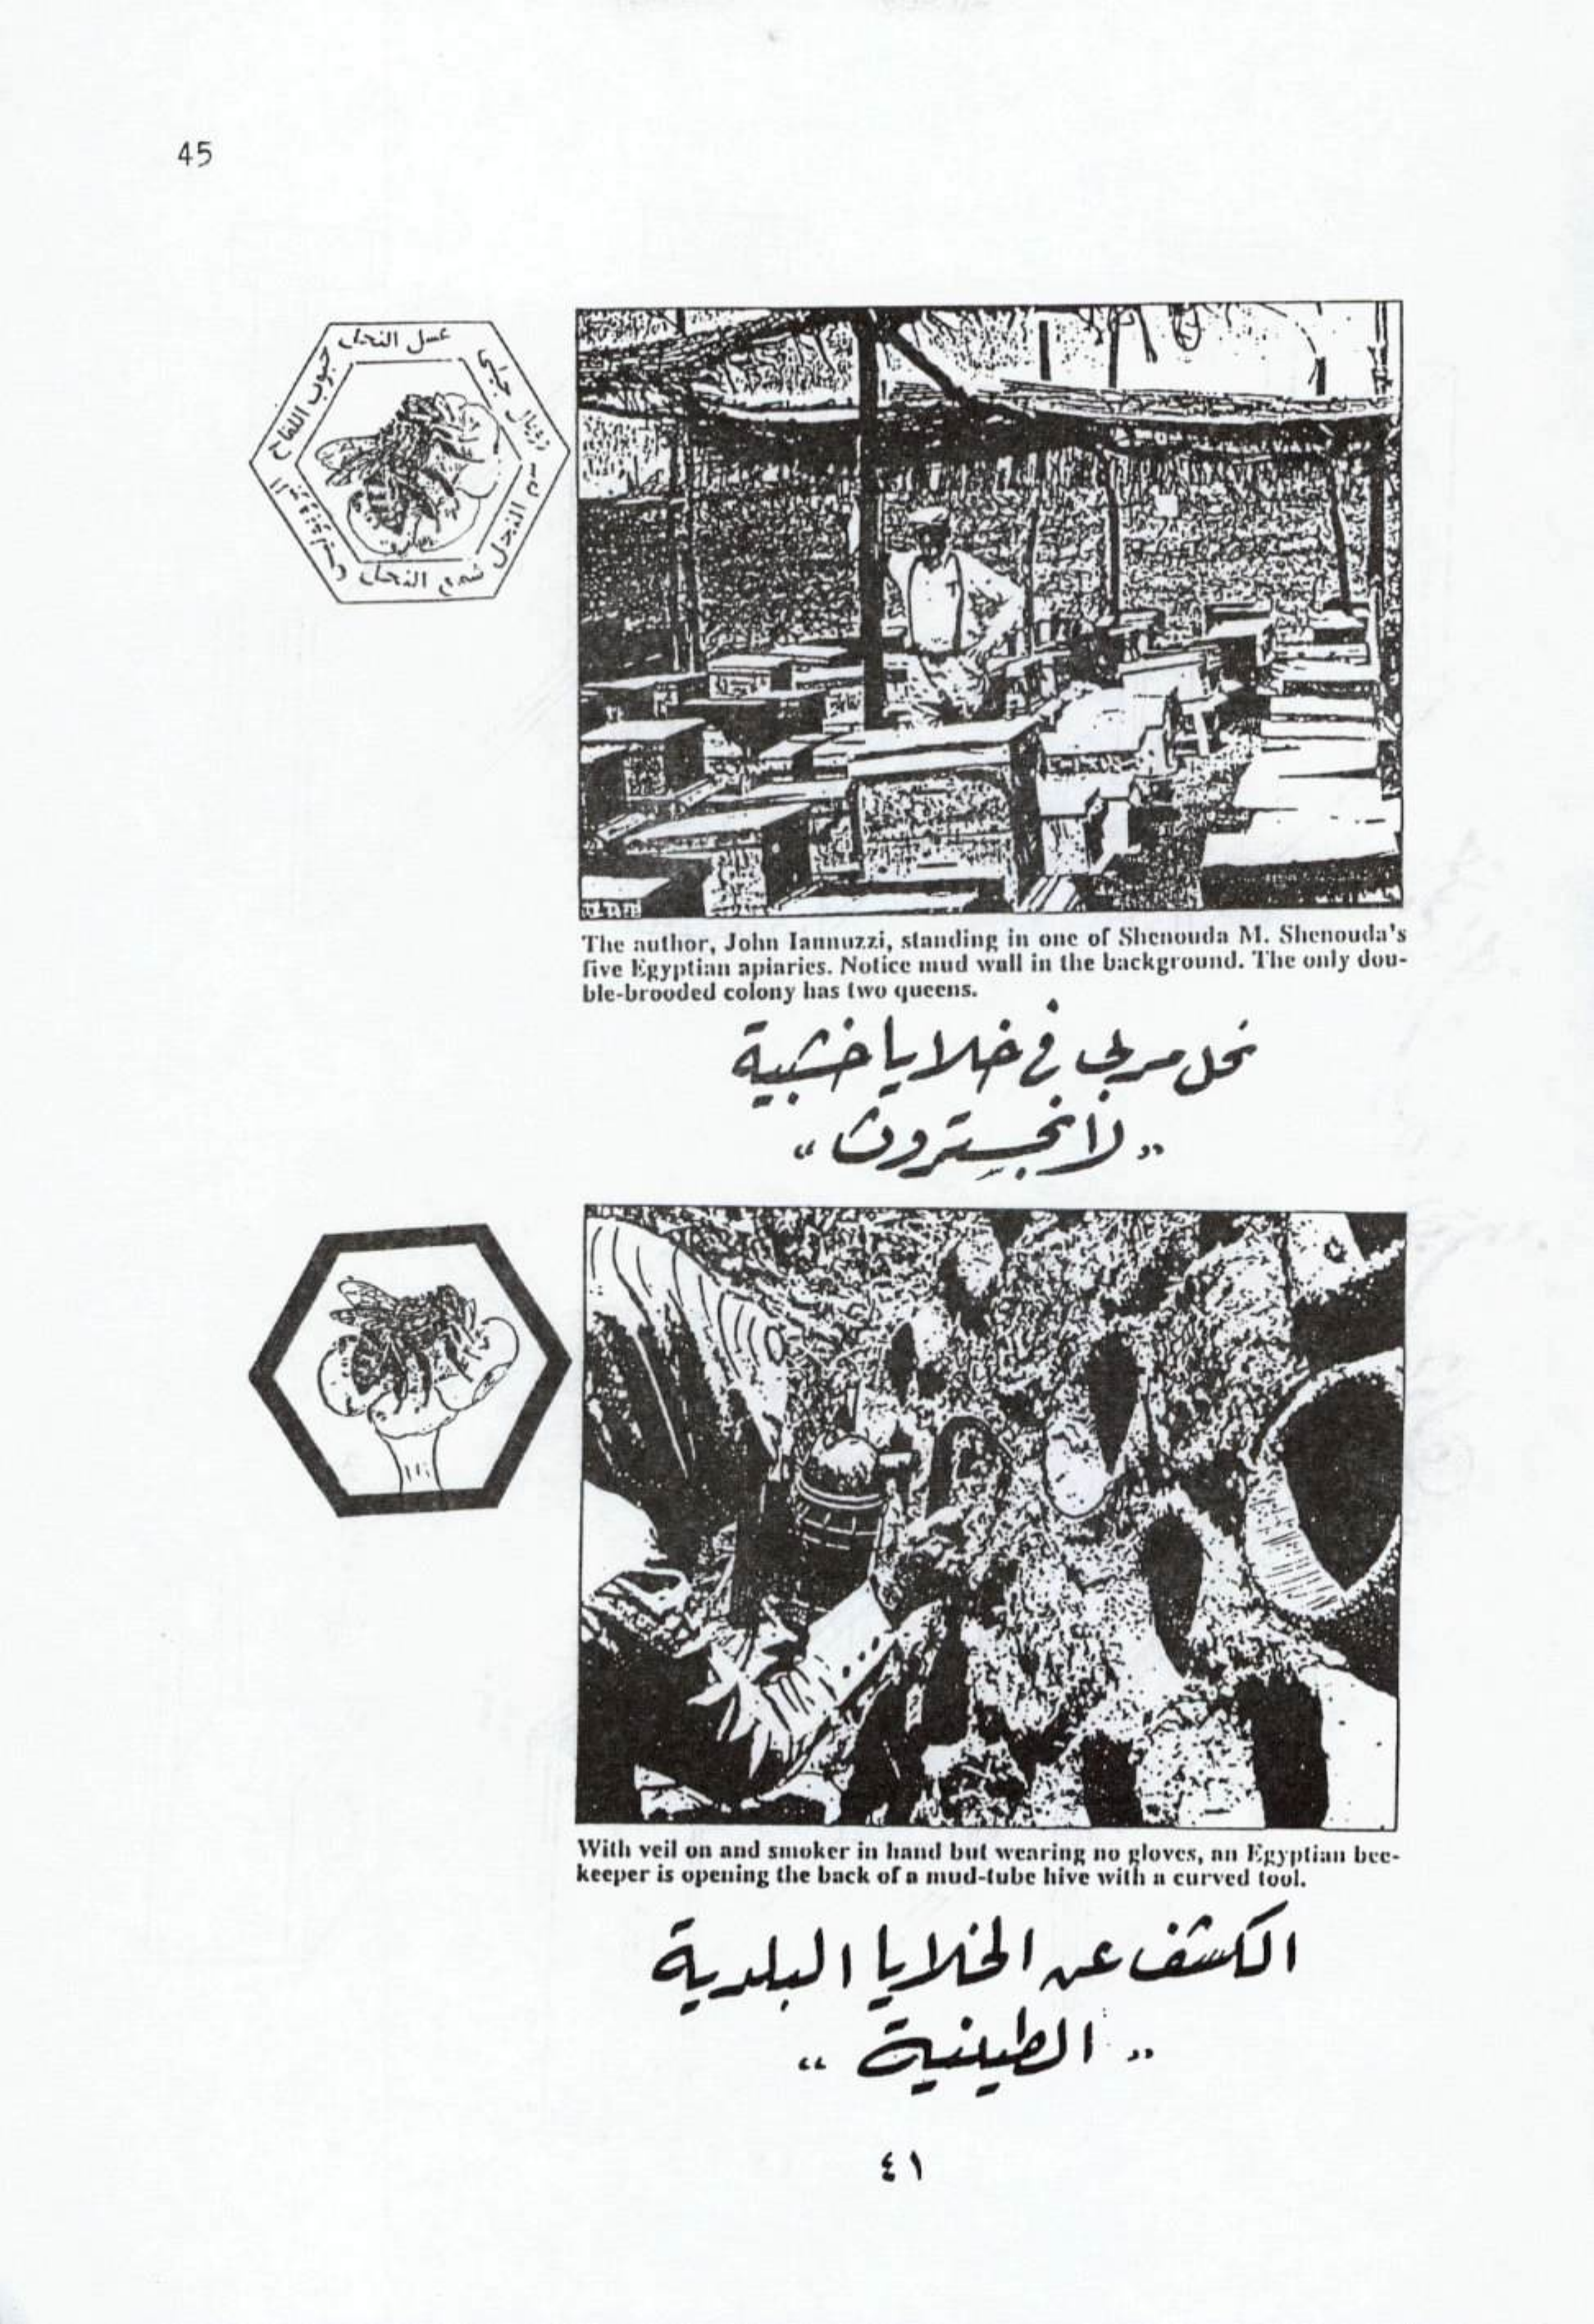 45
عسل النحل
حبوب اللقاح
رويال جيلى
سم النحل
شمع النحل
The author, John Iannuzzi, standing in one of Shenouda M. Shenouda's
five Egyptian apiaries. Notice mud wall in the background. The only dou-
ble-brooded colony has two queens.
نحل مربى في خلايا خشبية
„ لانجستروث “
With veil on and smoker in hand but wearing no gloves, an Egyptian bee-
keeper is opening the back of a mud-tube hive with a curved tool.
الكشف عن الخلايا البلدية
„ الطينية “
٤١